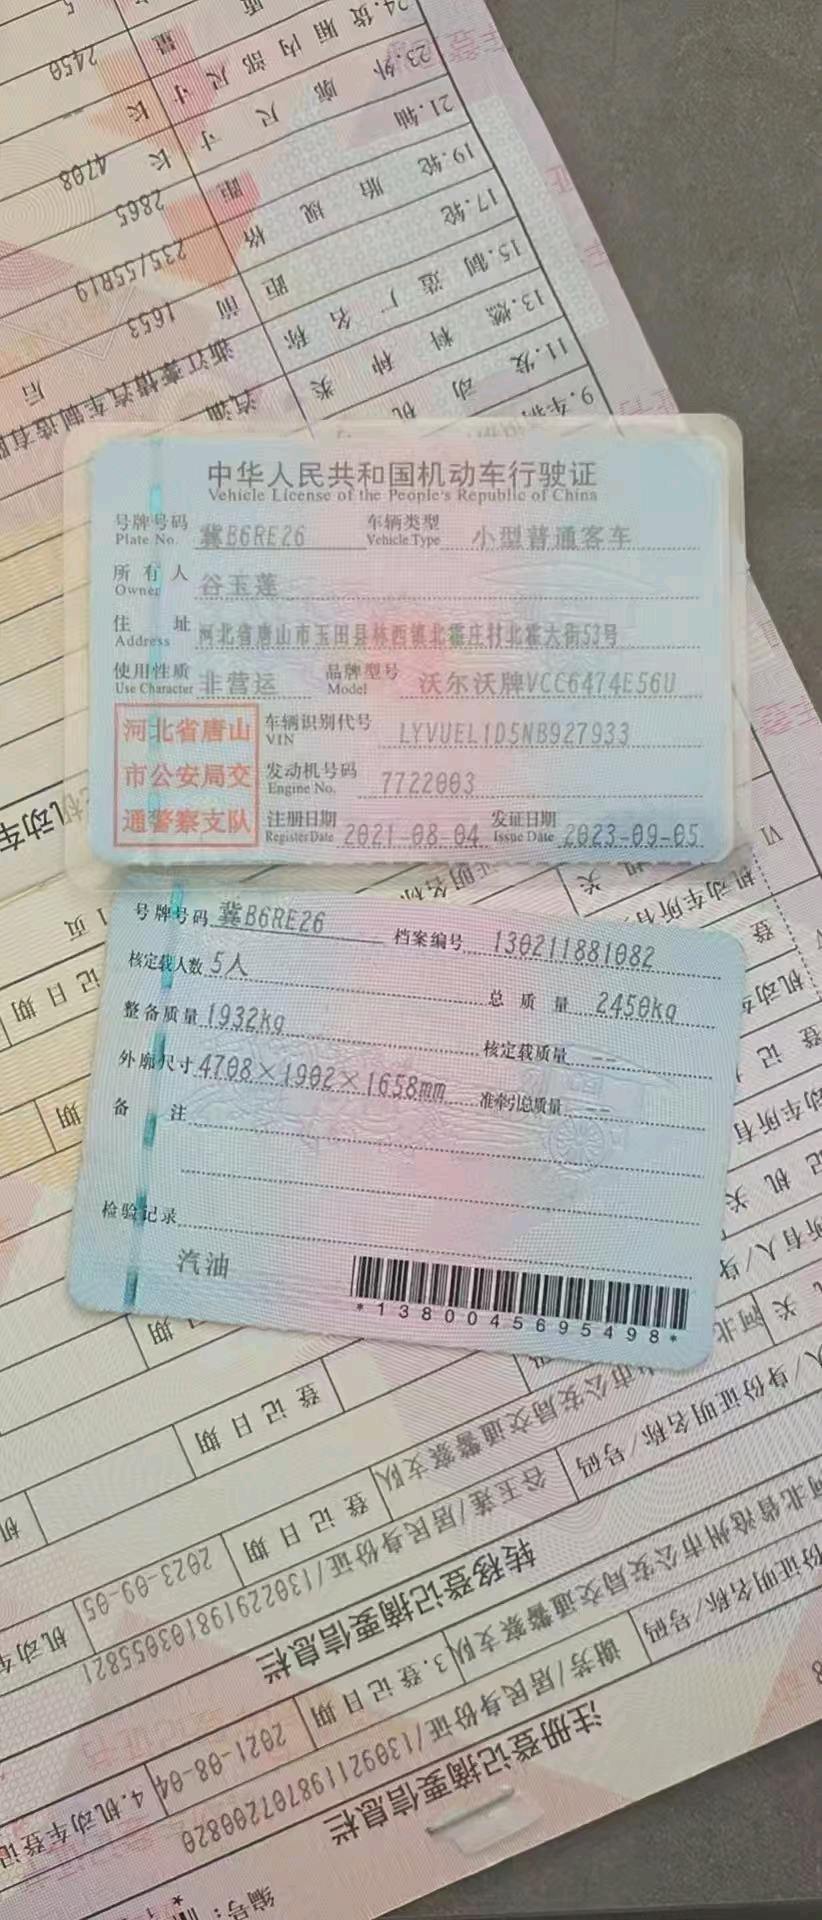 中华人民共和国机动车行驶证
Vehicle License of the People's Republic of China
号牌号码 冀B6RE26 车辆类型 小型普通客车
Plate No. Vehicle Type
所有人 谷玉莲
Owner
住址 河北省唐山市玉田县林西镇北霍庄村北霍大街53号
Address
使用性质 非营运 品牌型号 沃尔沃牌VCC6474E56U
Use Character Model
河北省唐山
市公安局交
通警察支队
车辆识别代号 LYVUEL1D5NB927933
VIN
发动机号码 7722003
Engine No.
注册日期 2021-08-04 发证日期 2023-09-05
Register Date Issue Date
号牌号码 冀B6RE26 档案编号 130211881082
核定载人数 5人 总质量 2450kg
整备质量 1932kg 核定载质量 --
外廓尺寸 4708×1902×1658mm 准牵引总质量 --
备注
检验记录
汽油
*1380045695498*
注册登记摘要信息栏
谢芳/居民身份证/130921198707200820
3.登记日期 2021-08-04 4.机动车登记
河北省沧州市公安局交通警察支队
转移登记摘要信息栏
谷玉莲/居民身份证/130229198103055821
登记日期 2023-09-05
登记日期
登记日期
9.车辆
11.发动机
13.燃料种类 汽油
15.制造厂名称 浙江豪情汽车制造有限
17.轮距 前 1653 后
19.轮胎规格 235/55R19
21.轴距 2865
23.外廓尺寸 长 4708
24.货厢内部尺寸 长
2450